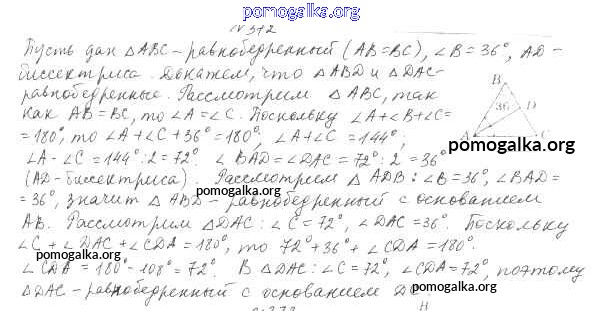 pomogalka.org
№ 372
Пусть дан △ABC – равнобедренный (AB=BC), ∠B=36°, AD-
биссектриса. Докажем, что △ABD и △DAC-
равнобедренные. Рассмотрим △ABC, так
как AB=BC, то ∠A=∠C. Поскольку ∠A+∠B+∠C=
=180°, то ∠A+∠C+36°=180°, ∠A+∠C=144°,
∠A-∠C=144°:2=72°. ∠BAD=∠DAC=72°:2=36°
(AD-биссектриса). Рассмотрим △ADB: ∠B=36°, ∠BAD=
=36°, значит △ABD – равнобедренный с основанием
AB. Рассмотрим △DAC: ∠C=72°, ∠DAC=36°. Поскольку
∠C+∠DAC+∠CDA=180°, то 72°+36°+∠CDA=180°.
∠CDA=180°-108°=72°. В △DAC: ∠C=72°, ∠CDA=72°, поэтому
△DAC – равнобедренный с основанием DC.
B
36
D
A
C
pomogalka.org
pomogalka.org
pomogalka.org
pomogalka.org
H